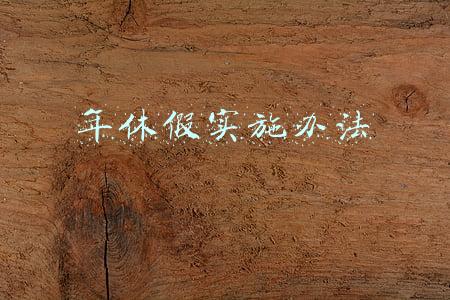 年休假实施办法